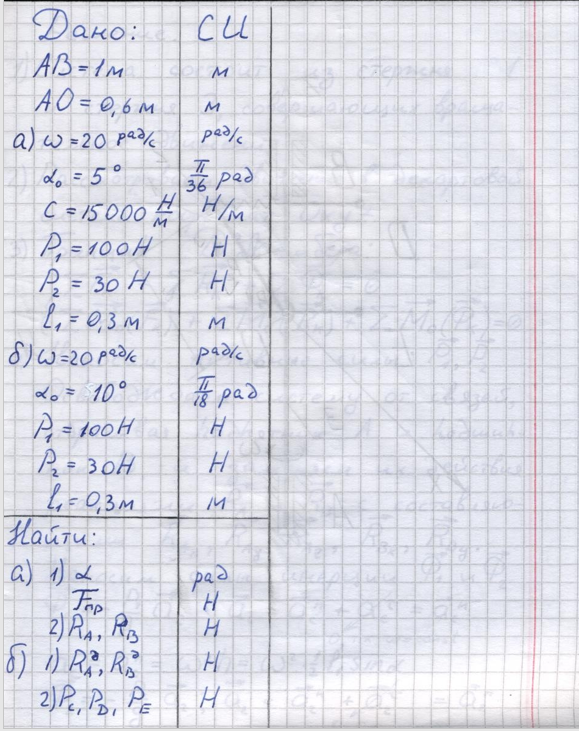 Дано: СИ
AB = 1 м м
AO = 0,6 м м
а) ω = 20 рад/с рад/с
α₀ = 5° π/36 рад
C = 15000 Н/м Н/м
P₁ = 100 Н Н
P₂ = 30 Н Н
l₁ = 0,3 м м
б) ω = 20 рад/с рад/с
α₀ = 10° π/18 рад
P₁ = 100 Н Н
P₂ = 30 Н Н
l₁ = 0,3 м м
Найти:
а) 1) α рад
Fпр Н
2) R_A, R_B Н
б) 1) R_A^д, R_B^д Н
2) P_C, P_D, P_E Н